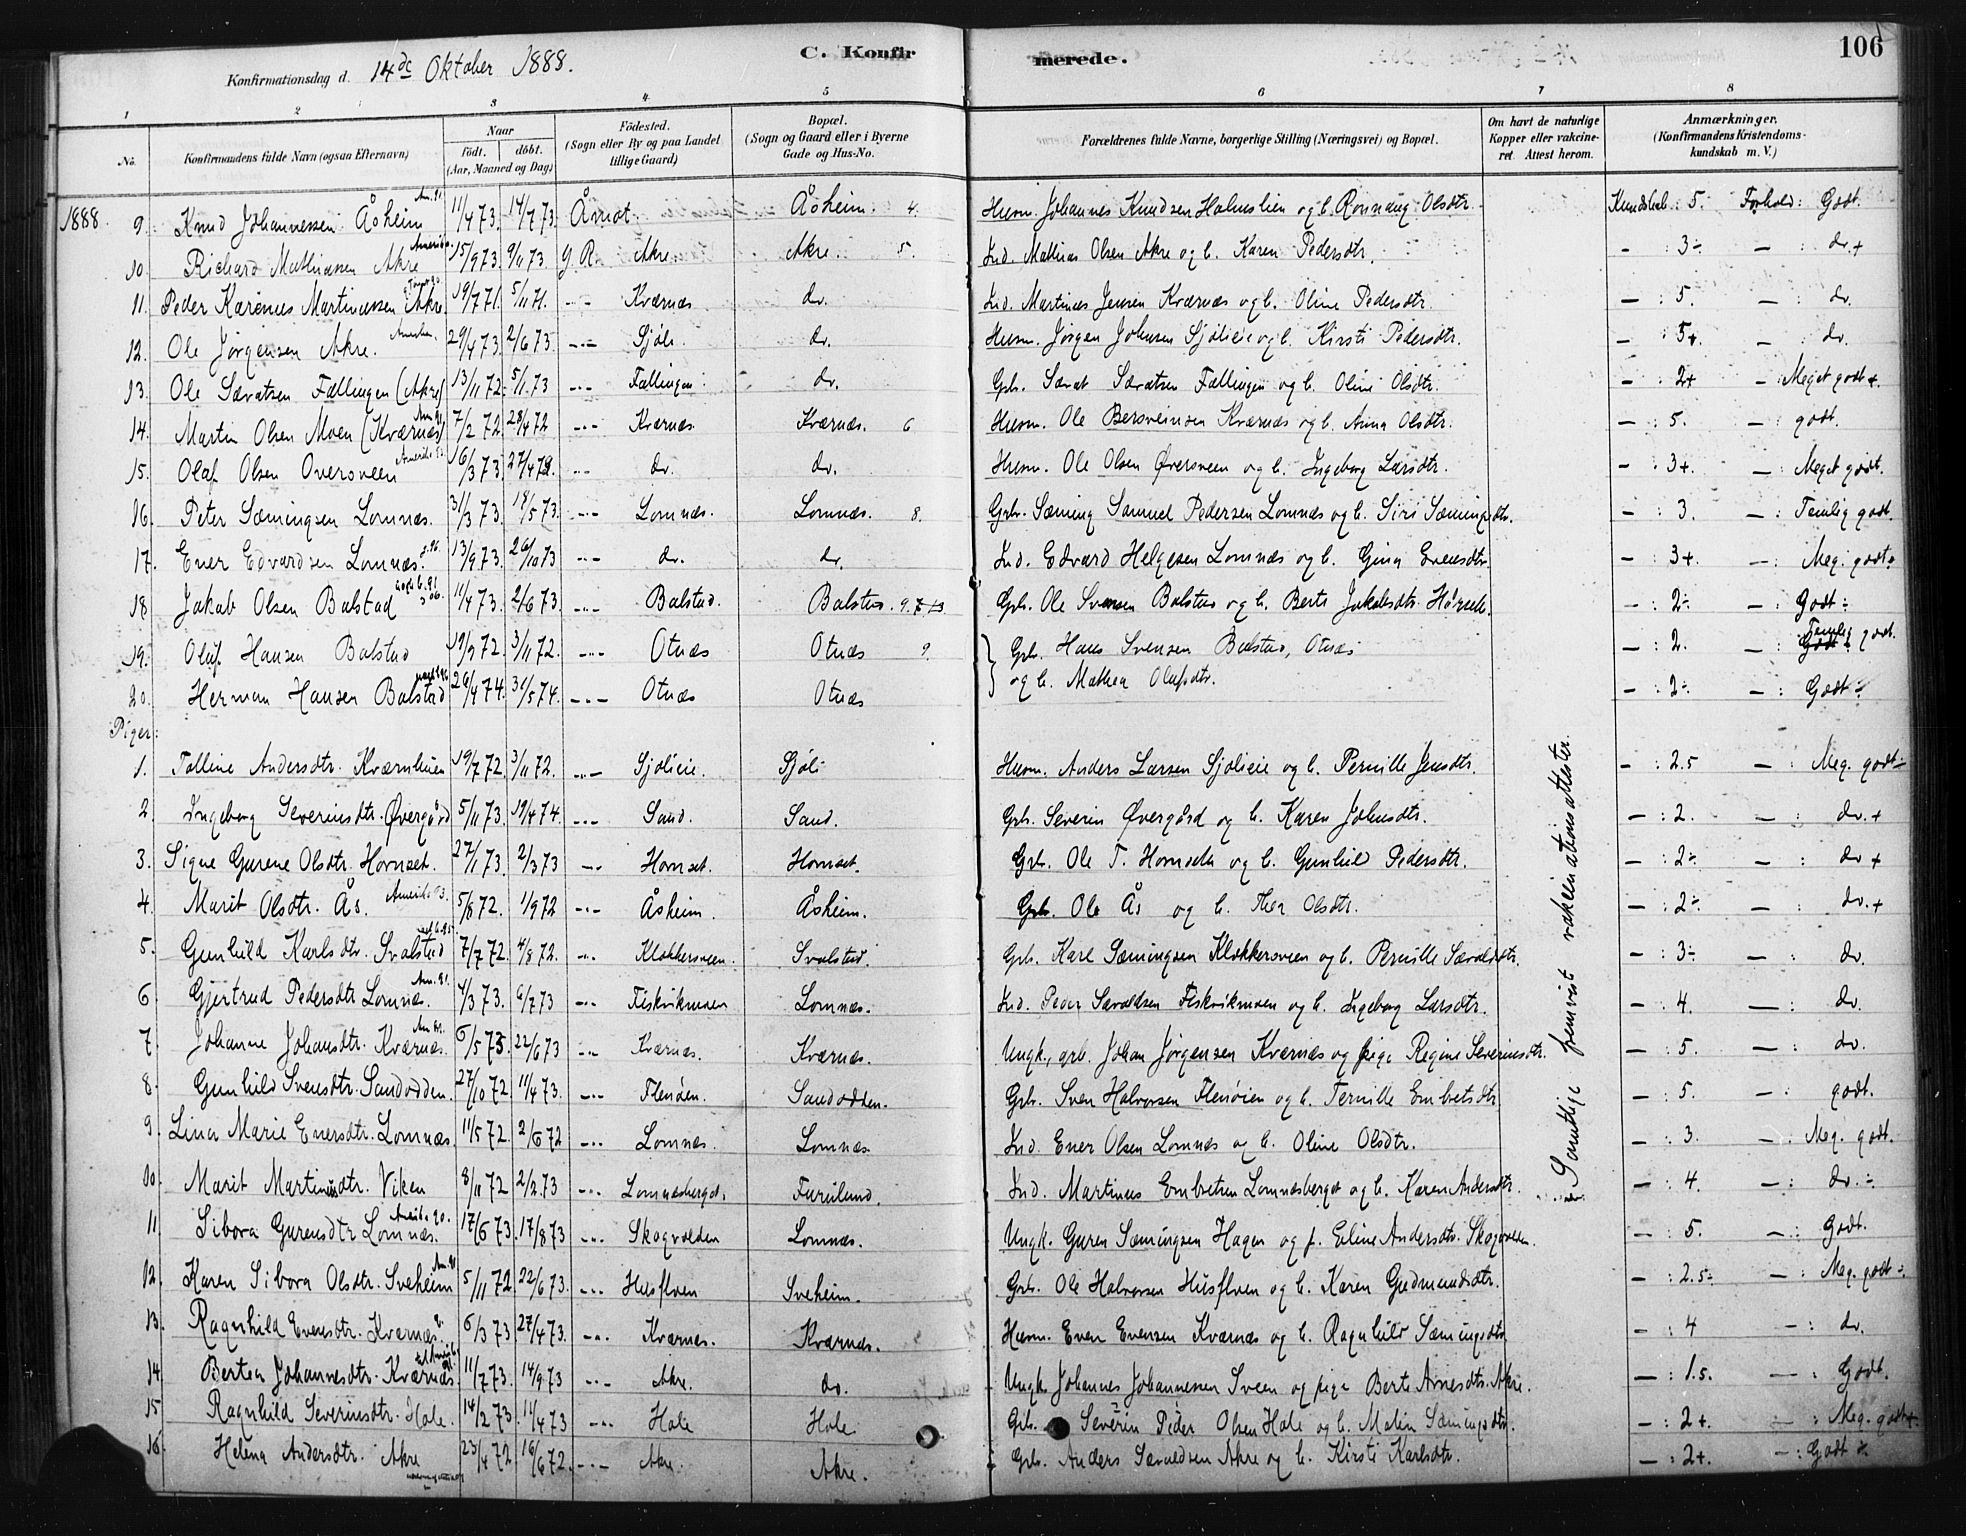 C. Konfirmerede.
106
Konfirmationsdag d. 14de Oktober 1888.
1 2 3 4 5 6 7 8
No. Konfirmandens fulde Navn (ogsaa Efternavn) Naar født. døbt. (Aar, Maaned og Dag) Fødested. (Sogn eller By og paa Landet tillige Gaard) Bopæl. (Sogn og Gaard eller i Byerne Gade og Hus-No. Forældrenes fulde Navne, borgerlige Stilling (Næringsvei) og Bopæl. Om havt de naturlige Kopper eller vakcineret. Attest herom. Anmærkninger. (Konfirmandens Kristendomskundskab m. V.)
1888. 9. Knud Johannessen Åsheim Am. 91. 11/4 73. 14/7 73. Åmot. Åsheim. 4. Husm. Johannes Knudsen Holmslien og h. Rønnaug Olsdtr. Kundskab: 5. Forhold: Godt.
10. Richard Mathiassen Akre Amerika. 15/9 73. 9/11 73. Y. R. Akre. Akre. 5. Ind. Mathias Olsen Akre og h. Karen Pedersdtr. – : 3÷ – : do.+
11. Peder Karenus Martinussen Akre 19/7 71. 5/11 71. –"– Kværnæs do. Ind. Martinus Jensen Kværnæs og h. Oline Pedersdtr. – : 5. – : do.
12. Ole Jørgensen Akre. 29/4 73. 2/6 73. –"– Sjøli. do. Husm. Jørgen Johnsen Sjølieie og h. Kirsti Pedersdtr. – : 5+. – : do.
13. Ole Sævatsen Fællingen (Akre) 13/11 72. 5/1 73 –"– Fællingen. do. Grb. Sævat Sævatsen Fællingen og h. Oline Olsdtr. – : 2+ – : Meget godt+.
14. Martin Olsen Moen (Kværnæs) 7/2 72. 28/4 72 –"– Kværnæs Kværnæs. 6 Husm. Ole Bersveinsen Kværnæs og h. Anna Olsdtr. – : 5. – : godt.
15. Olaf Olsen Oversveen 16/3 73. –"– do. do. Husm. Ole Olsen Øversveen og h. Ingeborg Larsdtr. – : 3+. – : Meget godt.
16. Peter Sæmingsen Lomnæs. 31/3 73. 18/5 73. –"– Lomnæs. Lomnæs. 8. Grb. Sæming Samuel Pedersen Lomnæs og h. Siri Sæmingsdtr. – : 3. – : Temlig godt.
17. Ener Edvardsen Lomnæs. 13/9 73. 26/10 73 –"– do. do. Ind. Edvard Helgesen Lomnæs og h. Gina Evensdtr. – : 3+. – : Meg. godt÷
18 Jakob Olsen Bolstad 11/4 73. 2/6 73. –"– Bolstad. Bolstad. Grb. Ole Svensen Bolstad og h. Berte Jakobsdtr. – : 2÷ – : Godt÷
19. Oluf Hansen Bolstad 19/9 72. 3/11 72. –"– Otnæs Otnæs 9. Grb. Hans Svensen Bolstad, Otnæs – : 2. – : Temlig godt.
20. Herman Hansen Bolstad 26/4 74. 31/5 74. –"– Otnæs Otnæs og h. Mathea Olufsdtr. – : 2÷ – : Godt÷
Piger:
1. Talline Andersdtr. Kværnhuien 19/7 72. 3/11 72. –"– Sjølieie. Sjøli Husm. Anders Larsen Sjølieie og h. Pernille Jensdtr. – : 2.5 – : Meg. godt÷
2. Ingeborg Severinsdtr. Øvergård 5/11 73. 19/4 74. –"– Sand. Sand. Grb. Severin Øvergård og h. Karen Johnsdtr. – : 2. – : do.+
3. Signe Gurene Olsdtr. Hornset. 27/1 73. 2/3 73 –"– Hornset. Hornset. Grb. Ole T. Hornseth og h. Gunhild Pedersdtr. – : 2÷ – : do+
4. Marit Olsdtr. Ås. 5/8 72. 1/9 72 –"– Åsheim. Åsheim. Grb. Ole Ås og h. Thea Olsdtr. – : 2÷ – : do.+
5. Gunhild Karlsdtr. Svalstad 7/7 72. 4/8 72. –"– Klokkersveen. Svalstad. Grb. Karl Sæmingsen Klokkersveen og h. Pernille Sævoldsdtr. – : 3÷ – : do.
6 Gjertrud Pedersdtr. Lomnæs. Am. 91. 4/3 73. 6/7 73 –"– Fiskvikmoen Lomnæs. Ind. Peder Sævoldsen Fiskvikmoen og h. Ingeborg Larsdtr. – : 4. – : do.
7. Johanne Johansdtr. Kværnæs. 6/5 73. 22/6 73 –"– Kværnæs. Kværnæs. Ungk., grb. Johan Jørgensen Kværnæs og pige Regine Severinsdtr. – : 5. – : do.
8. Gunhild Svensdtr. Sandodden. 27/10 72 11/4 73. –"– Flenøien. Sandodden. Grb. Sven Halvorsen Flenøien og h. Pernille Embretsdtr. – : 5. – : godt.
9. Lina Marie Enersdtr. Lomnæs. 11/5 72. 2/6 72 –"– Lomnæs. Lomnæs. Ind. Ener Olsen Lomnæs og h. Oline Olsdtr. – : 3. – : Meg. godt.
10. Marit Martinusdtr. Viken 8/11 72 2/2 73 –"– Lomnæsberget. Furulund. Ind. Martinus Embretsen Lomnæsberget og h. Karen Andersdtr. – : 4. – : do.÷
11. Sibora Gurensdtr. Lomnæs. 17/6 73. 17/8 73 –"– Skogvolden Lomnæs. Ungk. Guren Sæmingsen Hagen og p. Eline Andersdtr. – : 5. – : Godt.
12. Karen Sibora Olsdtr. Sveheim 5/11 72. 22/6 73. –"– Husfloen Sveheim. Grb. Ole Halvorsen Husfloen og h. Karen Gudmundsdtr. – : 2.5÷ – : Meg. godt÷
13. Ragnhild Evensdtr. Kværnæs. 6/3 73 27/4 73. –"– Kværnæs. Kværnæs. Husm. Even Evensen Kværnæs og h. Ragnhild Sæmingsdtr. – : 4 – : do.
14. Bertea Johannesdtr. Kværnæs. 11/7 73. 14/9 73 –"– Akre. do. Ungk. Johannes Johannessen Sveen og pige Berte Arnesdtr. Akre. – : 1.5. – : Godt.
15 Ragnhild Severinsdtr. Hole. 14/2 73. 11/4 73 –"– Hole Hole Grb. Severin Peder Olsen Hole og h. Malin Sæmingsdtr. – : 2+. – : Meg. godt+.
16. Helena Andersdtr. Akre 23/4 72 16/6 72. –"– Akre. Akre. Grb. Anders Sævoldsen Akre og h. Kirsti Karlsdtr. – : 2+. – : Godt÷
Samtlige fremvist vakcinationsattester.